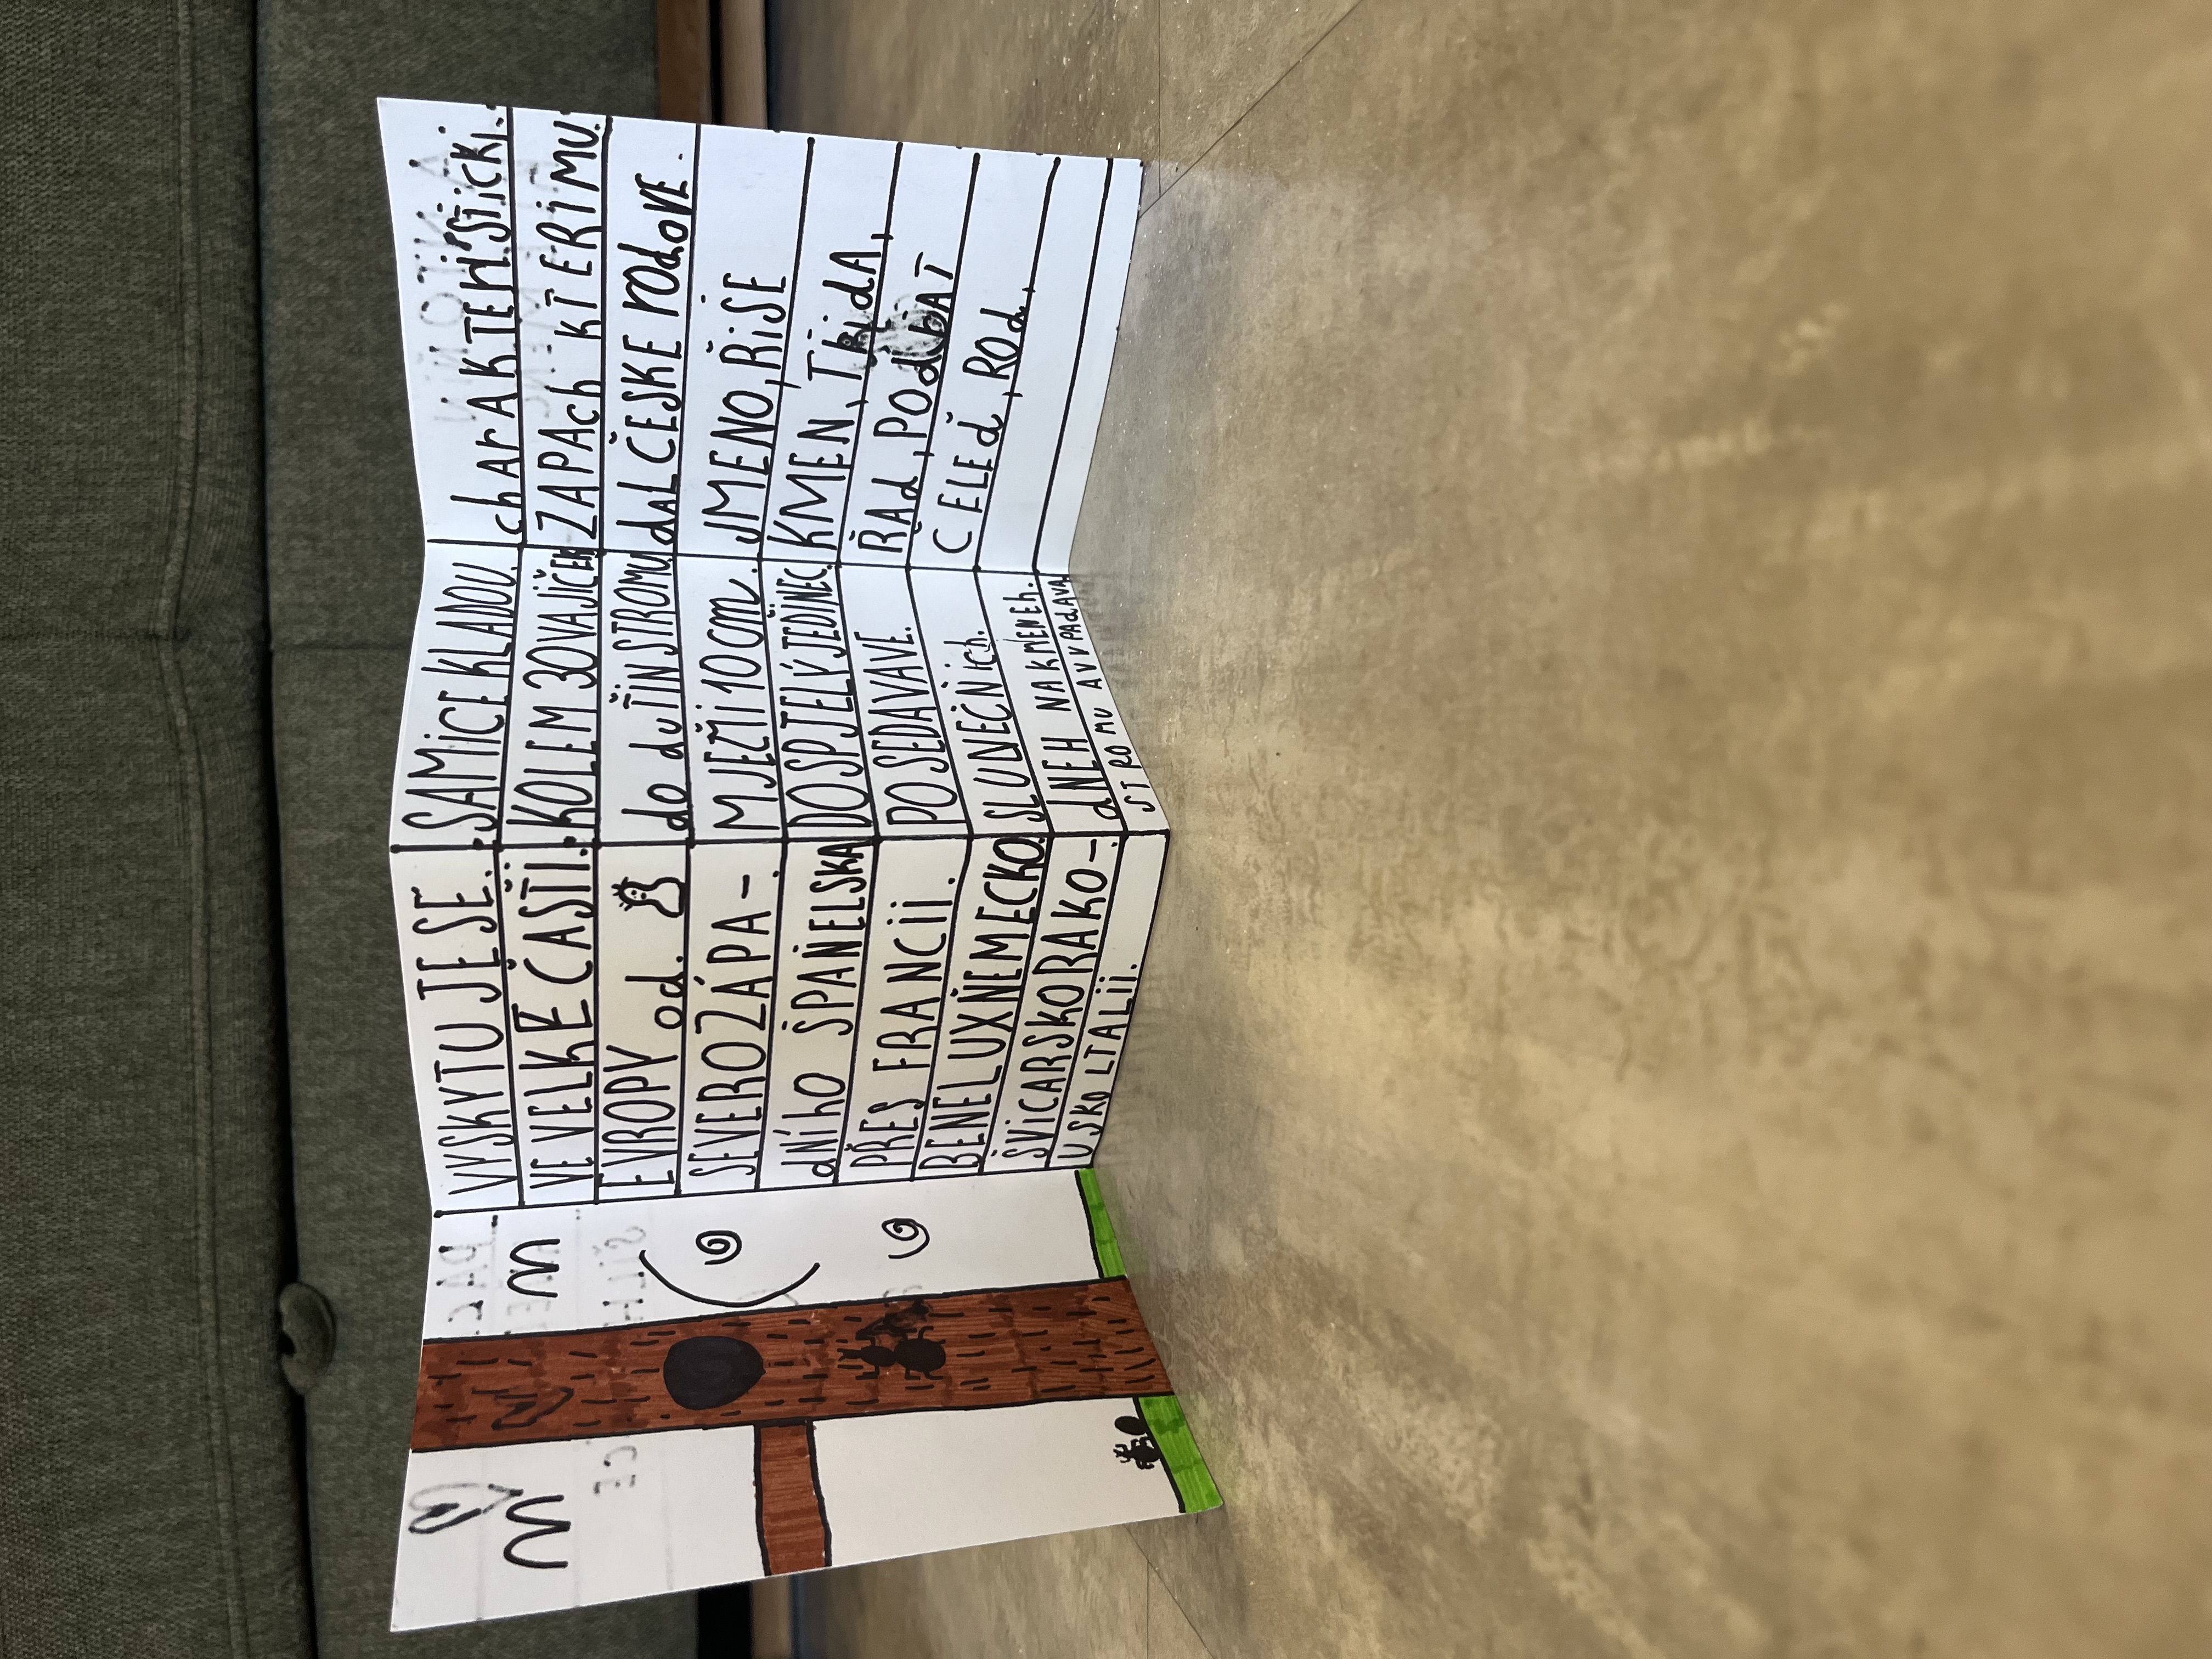 VYSKYTUJE SE.
VE VELKÉ ČASŤI.
EVROPY od.
SEVEROZÁPA-.
dNÍhO ŠPAŇELSKA
PŘES FRANCII.
BENELUXŇEMECKO.
ŠVICARSKORAKO-.
USKO LTALII.
SAMICE KLADOU.
KOLEM 30 VAJÍČEK
do duŤIN STROMU
MJEŽŤI 10 cm.
DOSPJELÝ JEDIŇEC.
POSEDAVAVE.
SLUNEČNích.
dNEH NA KMENEh.
STROMU A VVPAdAVA
chArAKTEHiSTiCKi.
ZAPAch KTERiMU.
dAL ČESKE rOdOVE.
JMENO, ŘiŠE
KMEN, TŘidA,
ŘAd, POdŘAT
CELEd, ROd,.